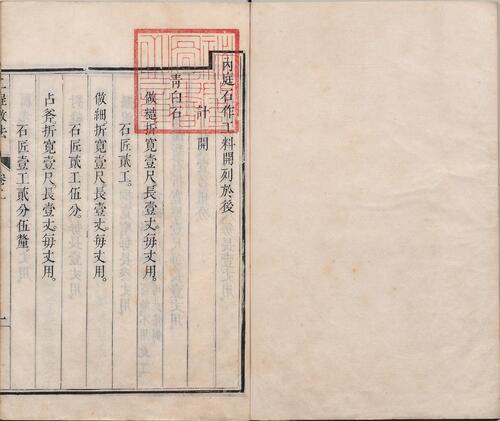 內庭石作工料開列於後
計開
青白石
做糙折寬壹尺長壹丈每丈用
石匠貳工
做細折寬壹尺長壹丈每丈用
石匠貳工伍分
占斧折寬壹尺長壹丈每丈用
石匠壹工貳分伍釐
工程做法
卷二
一